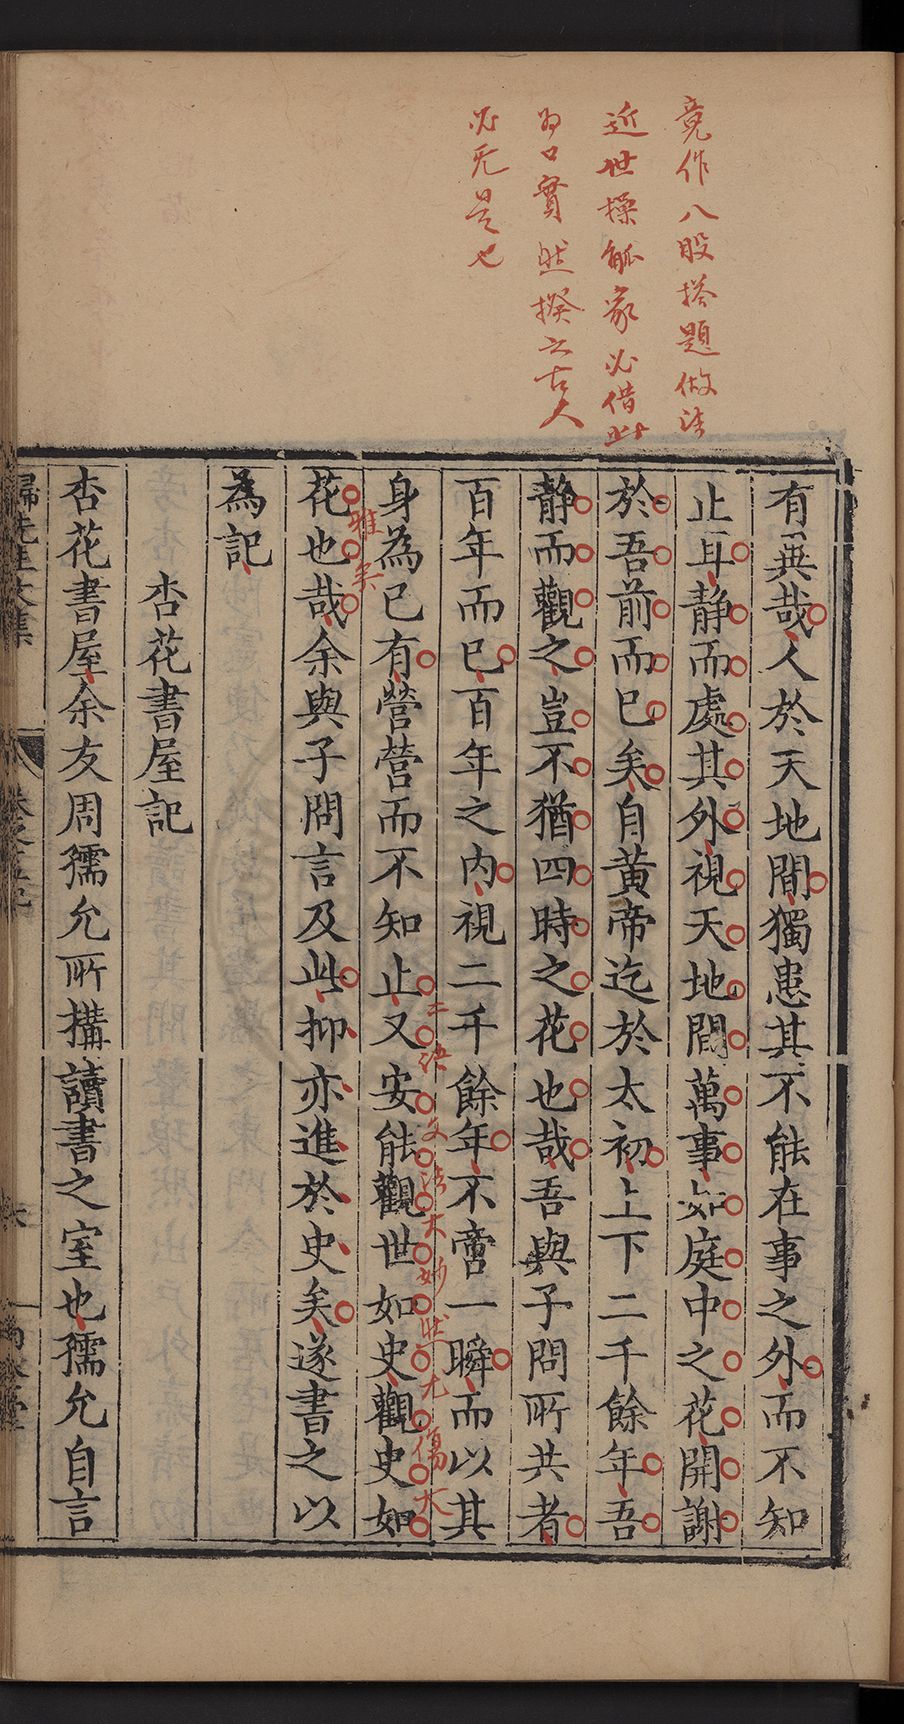 竟作八股搭題做法
近世操觚家必借此
為口實然揆之古人
必无是也
有異哉人於天地間獨患其不能在事之外而不知
止耳靜而處其外視天地間萬事如庭中之花開謝
於吾前而已矣自黃帝迄於太初上下二千餘年吾
靜而觀之豈不猶四時之花也哉吾與子問所共者
百年而已百年之內視二千餘年不啻一瞬而以其
身為已有營營而不知止又安能觀世如史觀史如
二決文法大妙然尤傷大
花也哉余與子問言及此抑亦進於史矣遂書之以
雅矣
為記
杏花書屋記
杏花書屋余友周孺允所構讀書之室也孺允自言
歸先生文集
卷之十五記